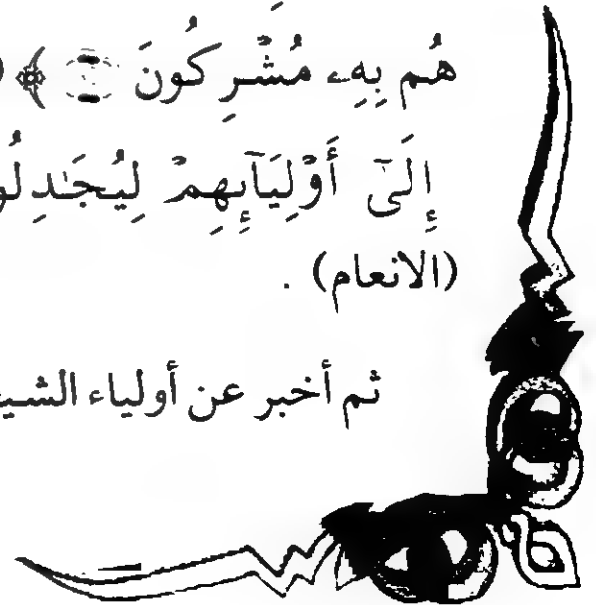 هُم بِهِۦ مُشْرِكُونَ ﴾ (
إِلَىٰٓ أَوْلِيَآئِهِمْ
(الانعام) .
ثم أخبر عن أولياء